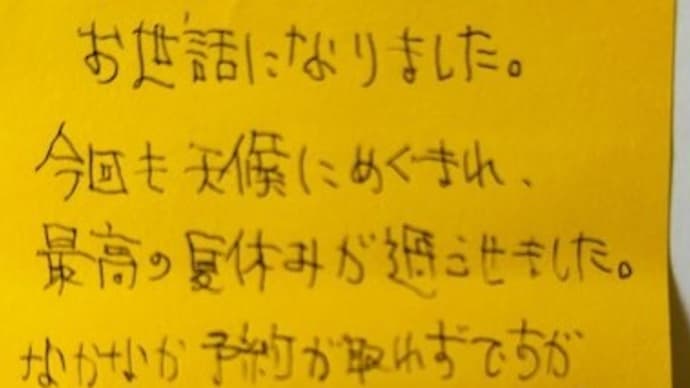 お世話になりました。
今回も天候にめぐまれ、
最高の夏休みが過ごせました。
なかなか予約が取れずですが